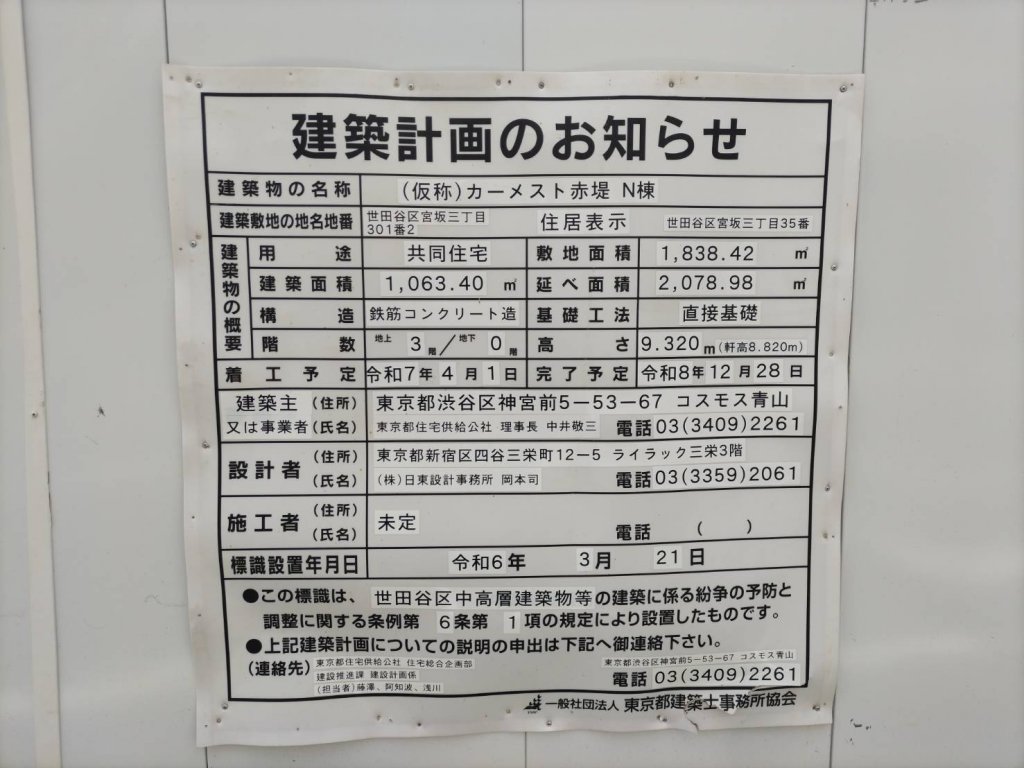 建築計画のお知らせ
建築物の名称 (仮称)カーメスト赤堤 N棟
建築敷地の地名地番 世田谷区宮坂三丁目301番2 住居表示 世田谷区宮坂三丁目35番
建築物の概要
用途 共同住宅 敷地面積 1,838.42 ㎡
建築面積 1,063.40 ㎡ 延べ面積 2,078.98 ㎡
構造 鉄筋コンクリート造 基礎工法 直接基礎
階数 地上 3階/地下 0階 高さ 9.320m(軒高8.820m)
着工予定 令和7年4月1日 完了予定 令和8年12月28日
建築主 (住所) 東京都渋谷区神宮前5-53-67 コスモス青山
又は事業者 (氏名) 東京都住宅供給公社 理事長 中井敬三 電話03(3409)2261
設計者 (住所) 東京都新宿区四谷三栄町12-5 ライラック三栄3階
(氏名) (株)日東設計事務所 岡本司 電話03(3359)2061
施工者 (住所) 未定
(氏名) 電話 ( )
標識設置年月日 令和6年 3月 21日
●この標識は、世田谷区中高層建築物等の建築に係る紛争の予防と
調整に関する条例第 6条第 1 項の規定により設置したものです。
●上記建築計画についての説明の申出は下記へ御連絡下さい。
(連絡先) 東京都住宅供給公社 住宅総合企画部 東京都渋谷区神宮前5-53-67 コスモス青山
建設推進課 建設計画係 電話 03(3409)2261
(担当者)藤澤、阿知波、浅川
一般社団法人 東京都建築士事務所協会